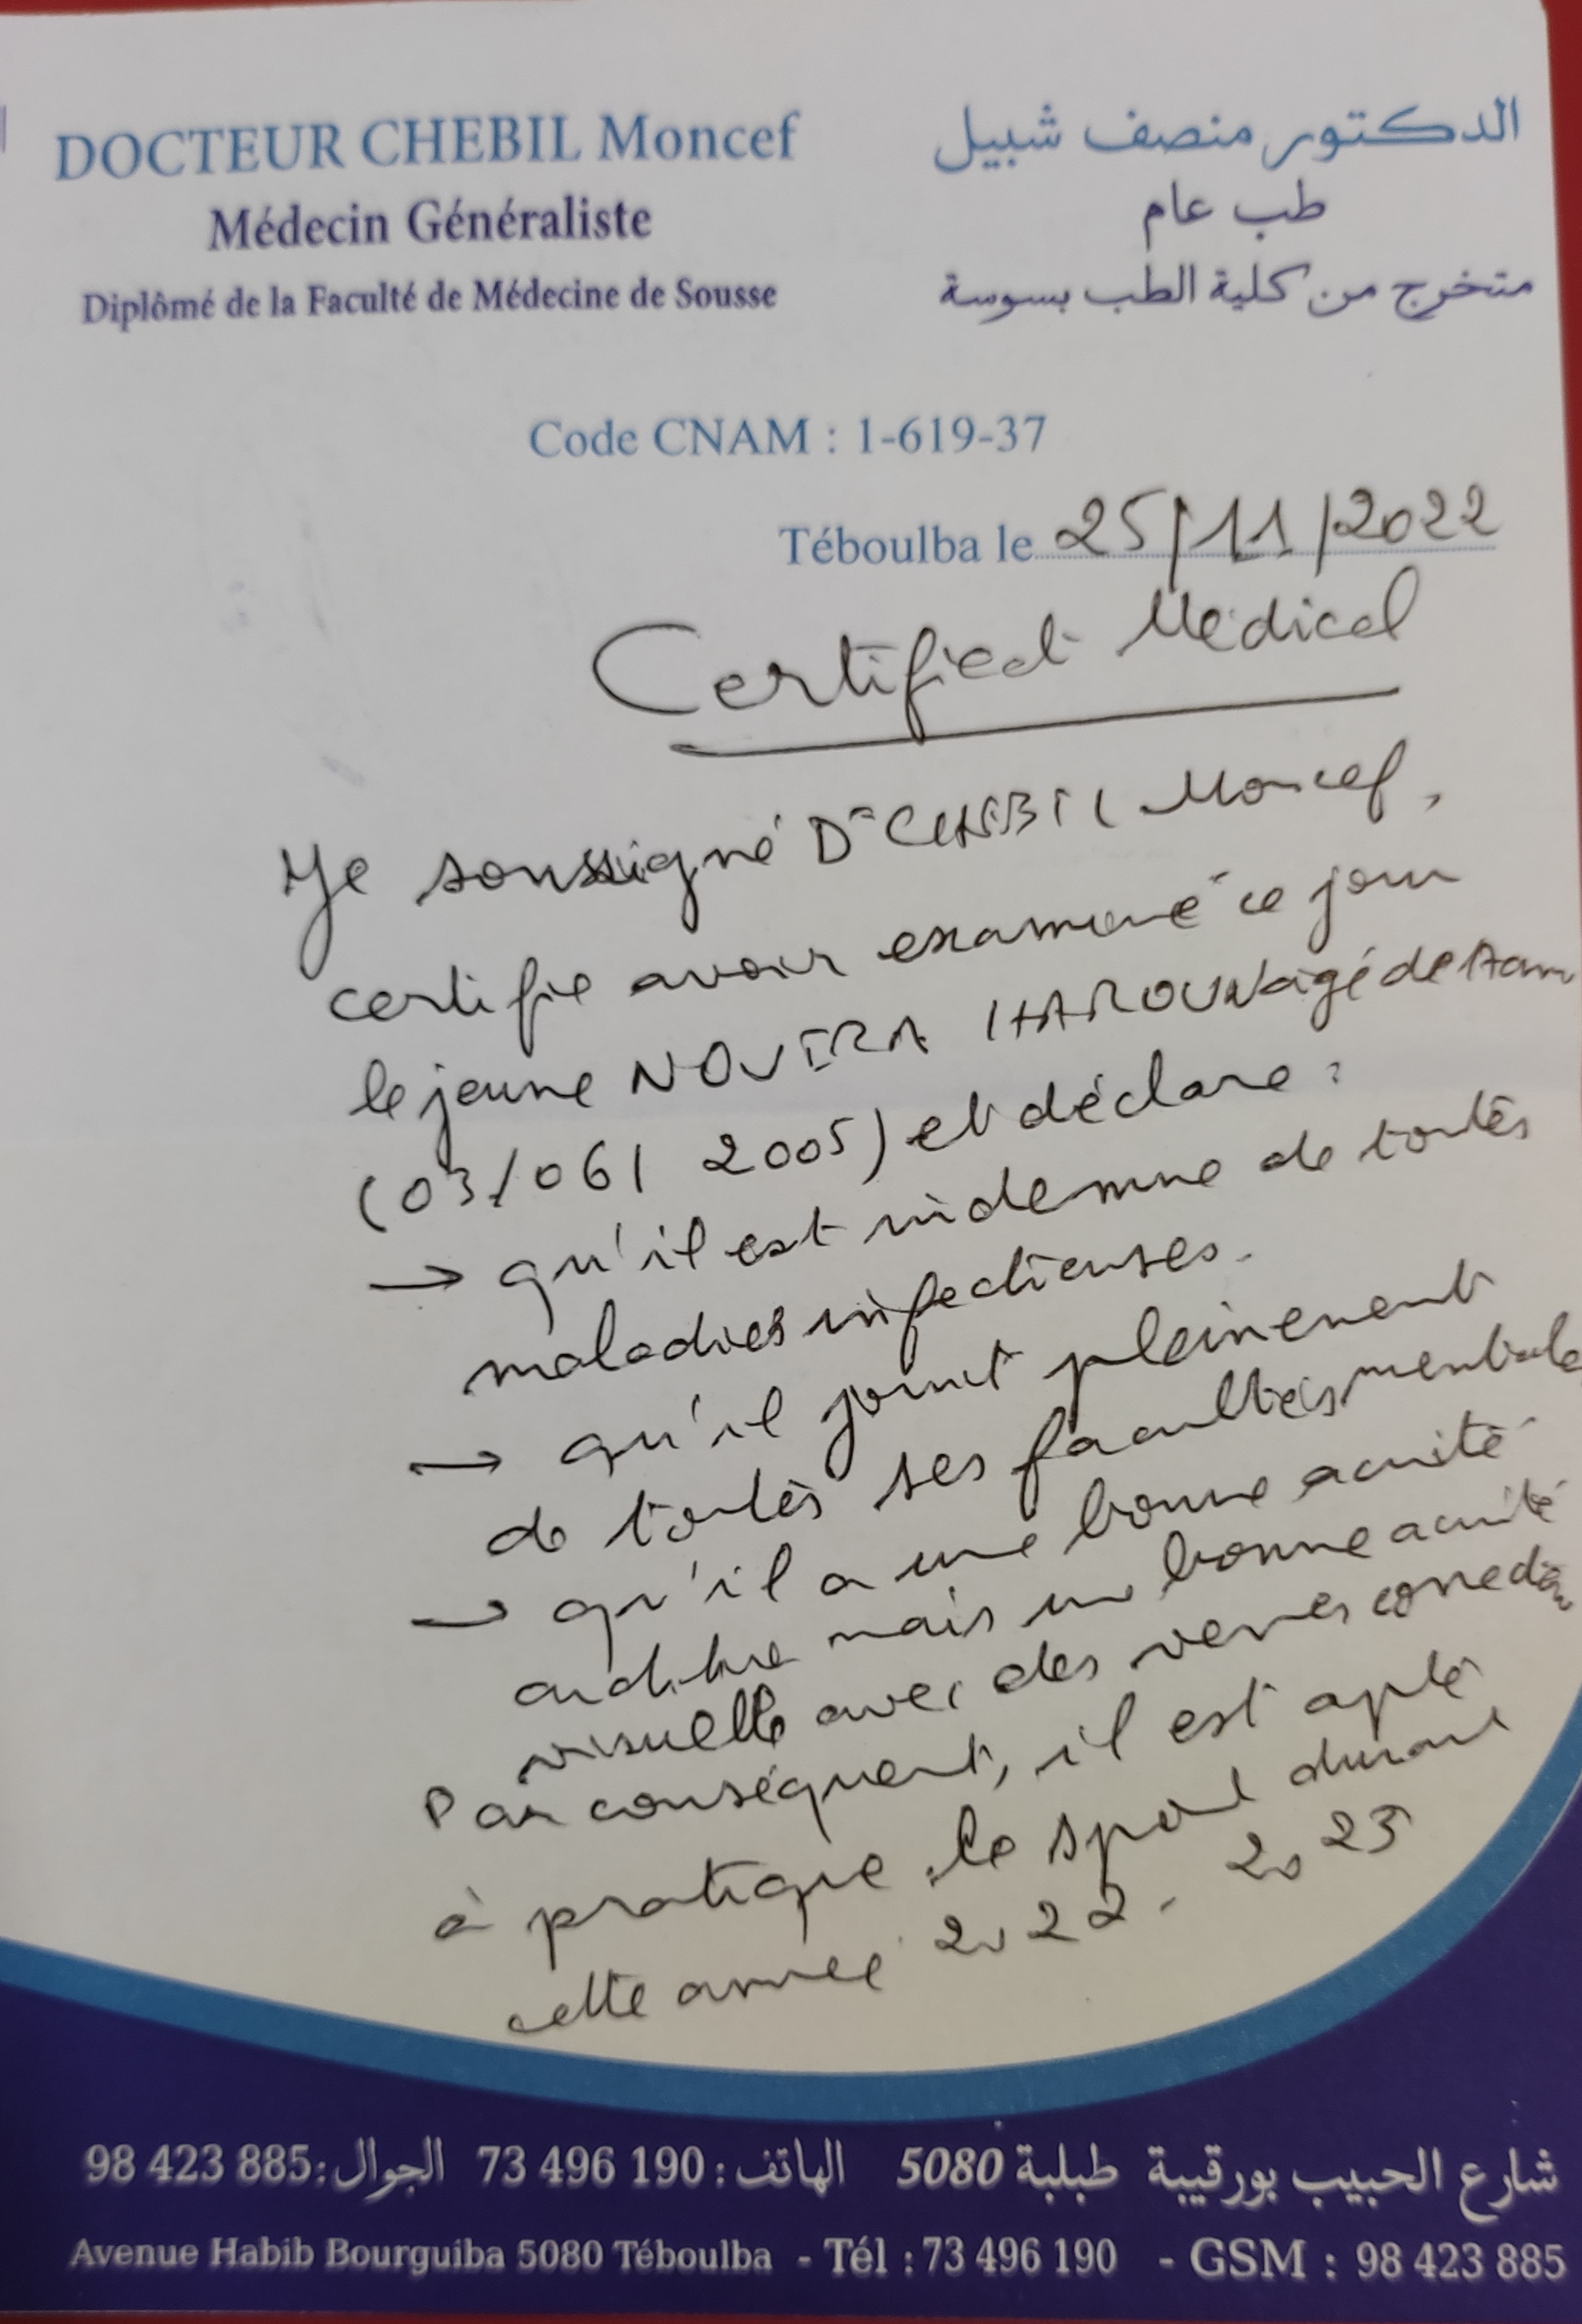 DOCTEUR CHEBIL Moncef
Médecin Généraliste
Diplômé de la Faculté de Médecine de Sousse
الدكتور منصف شبيل
طب عام
متخرج من كلية الطب بسوسة
Code CNAM : 1-619-37
Téboulba le 25/11/2022
Certificat Médical
Je soussigné Dr CHEBIL Moncef,
certifie avoir examiné ce jour
le jeune NOUIRA HAROUN âgé de ans
(03/06/2005) et déclare :
→ qu'il est indemne de toutes
maladies infectieuses.
→ qu'il jouit pleinement
de toutes ses facultés mentales
→ qu'il a une bonne acuité
auditive mais une bonne acuité
visuelle avec des verres
Par conséquent, il est apte
à pratique le sport durant
cette année 2022-2023
شارع الحبيب بورقيبة طبلبة 5080 الهاتف: 73 496 190 الجوال: 98 423 885
Avenue Habib Bourguiba 5080 Téboulba - Tél : 73 496 190 - GSM : 98 423 885